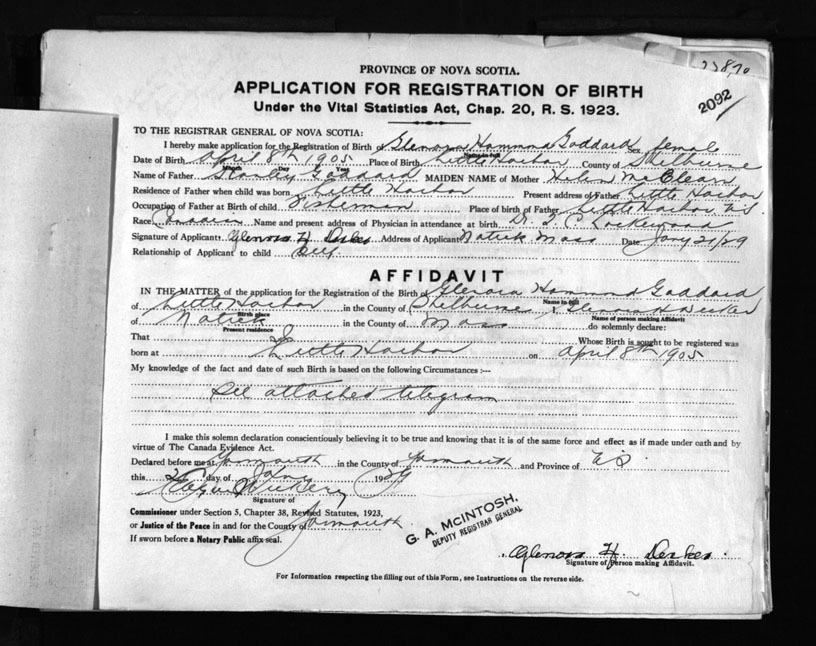 2092
PROVINCE OF NOVA SCOTIA.
APPLICATION FOR REGISTRATION OF BIRTH
Under the Vital Statistics Act, Chap. 20, R. S. 1923.
TO THE REGISTRAR GENERAL OF NOVA SCOTIA:
I hereby make application for the Registration of Birth of Glenora Hammond Goddard Sex female
Name in full
Date of Birth April 8th 1905 Place of Birth Little Harbor County of Shelburne
Month Day Year
Name of Father Stanley Goddard MAIDEN NAME of Mother Helen
Residence of Father when child was born Little Harbor Present address of Father Little Harbor
Occupation of Father at Birth of child Fisherman Place of birth of Father Little Harbor N.S.
Race Name and present address of Physician in attendance at birth Dr. Lockwood
Signature of Applicant Glenora H Address of Applicant Natick Mass Date Jany 21/29
Relationship of Applicant to child Self.
AFFIDAVIT
IN THE MATTER of the application for the Registration of the Birth of Glenora Hammond Goddard
Name in full
of Little Harbor in the County of Shelburne, I, Glenora H
Birth place Name of person making Affidavit
of Natick in the County of Mass do solemnly declare:
Present residence
That I Whose Birth is sought to be registered was
born at Little Harbor on April 8th 1905
My knowledge of the fact and date of such Birth is based on the following Circumstances :—
See attached telegram
I make this solemn declaration conscientiously believing it to be true and knowing that it is of the same force and effect as if made under oath and by
virtue of The Canada Evidence Act.
Declared before me at Yarmouth in the County of Yarmouth and Province of N.S.
this day of Jan 1929
Signature of
Commissioner under Section 5, Chapter 38, Revised Statutes, 1923,
or Justice of the Peace in and for the County of Yarmouth
If sworn before a Notary Public affix seal.
G. A. McINTOSH,
DEPUTY REGISTRAR GENERAL
Glenora H.
Signature of person making Affidavit.
For Information respecting the filling out of this Form, see Instructions on the reverse side.